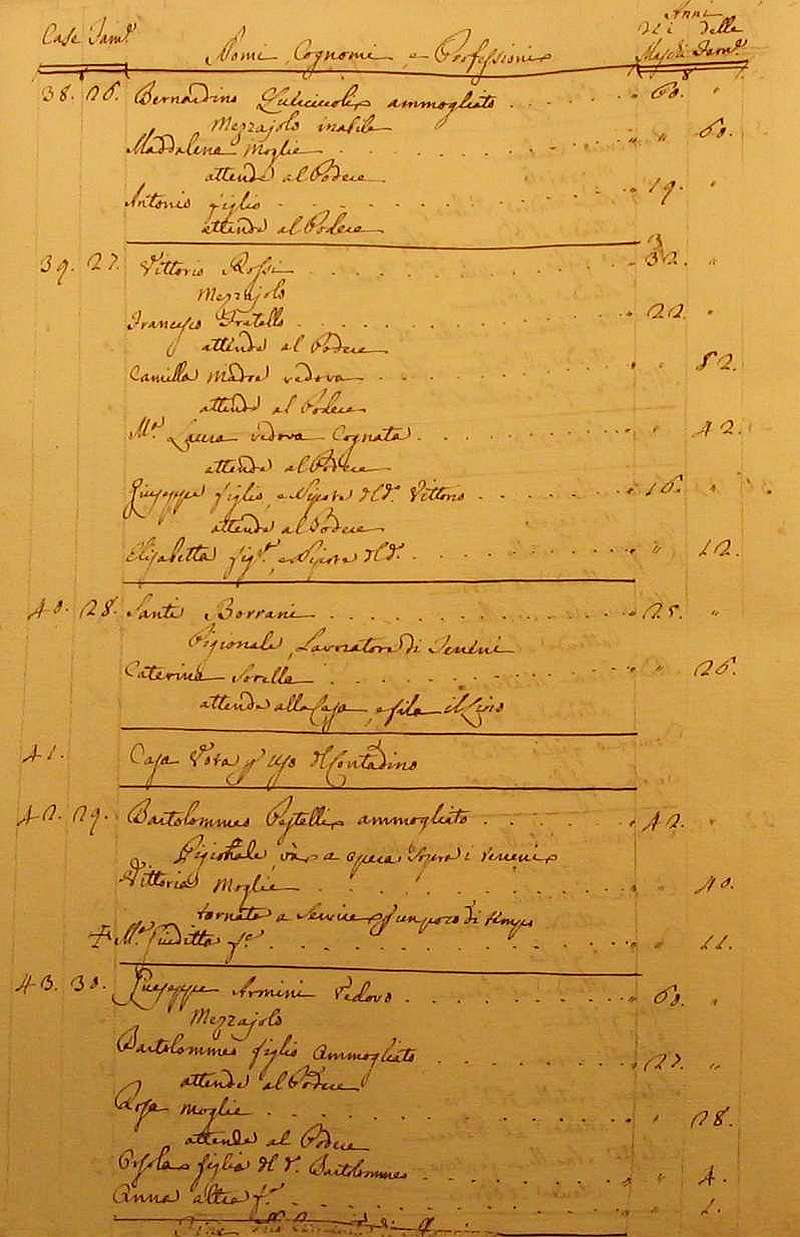 Anni
Case Fam.e di i delle
Nomi, Cognomi, e Professioni Maschi Fem.e
38. 26. Bernardino ammogliato 60. "
Mezzajolo inabile
Maddalena Moglie " 60.
attende al Podere
Antonio figlio 19. "
attende al Podere
39. 27. Vittorio Rossi 32. "
Mezzajolo
Francesco Fratello 22. "
attende al Podere
Camilla Madre vedova " 52.
attende al Podere
M.a Laura vedova Cognata " 42.
attende al Podere
Giuseppe figlio, e Nipote del d.o Vittorio 16. "
attende al Podere
Elisabetta fig.a, e Nipote del d.o " 12.
40. 28. Santi Borrani 25. "
Pigionale, Lavoratore di Terreni
Caterina Sorella " 26.
attende alla Casa, e fila il Lino
41. Casa Vota p uso del Contadino
42. 29. Bartolommeo Pestelli ammogliato 42. "
Pigionale, và a opera sopra i terreni
Vittoria Moglie " 40.
tornata a Servire p un poco di tempo
M.a Giuditta f.a " 11.
43. 30. Giuseppe Armini Vedovo 60. "
Mezzajolo
Bartolommeo figlio Ammogliato 27. "
attende al Podere
Rosa Moglie " 28.
attende al Podere
Orsola figlia del d.o Bartolommeo " 4.
Anna altra f.a " 1.
Fine